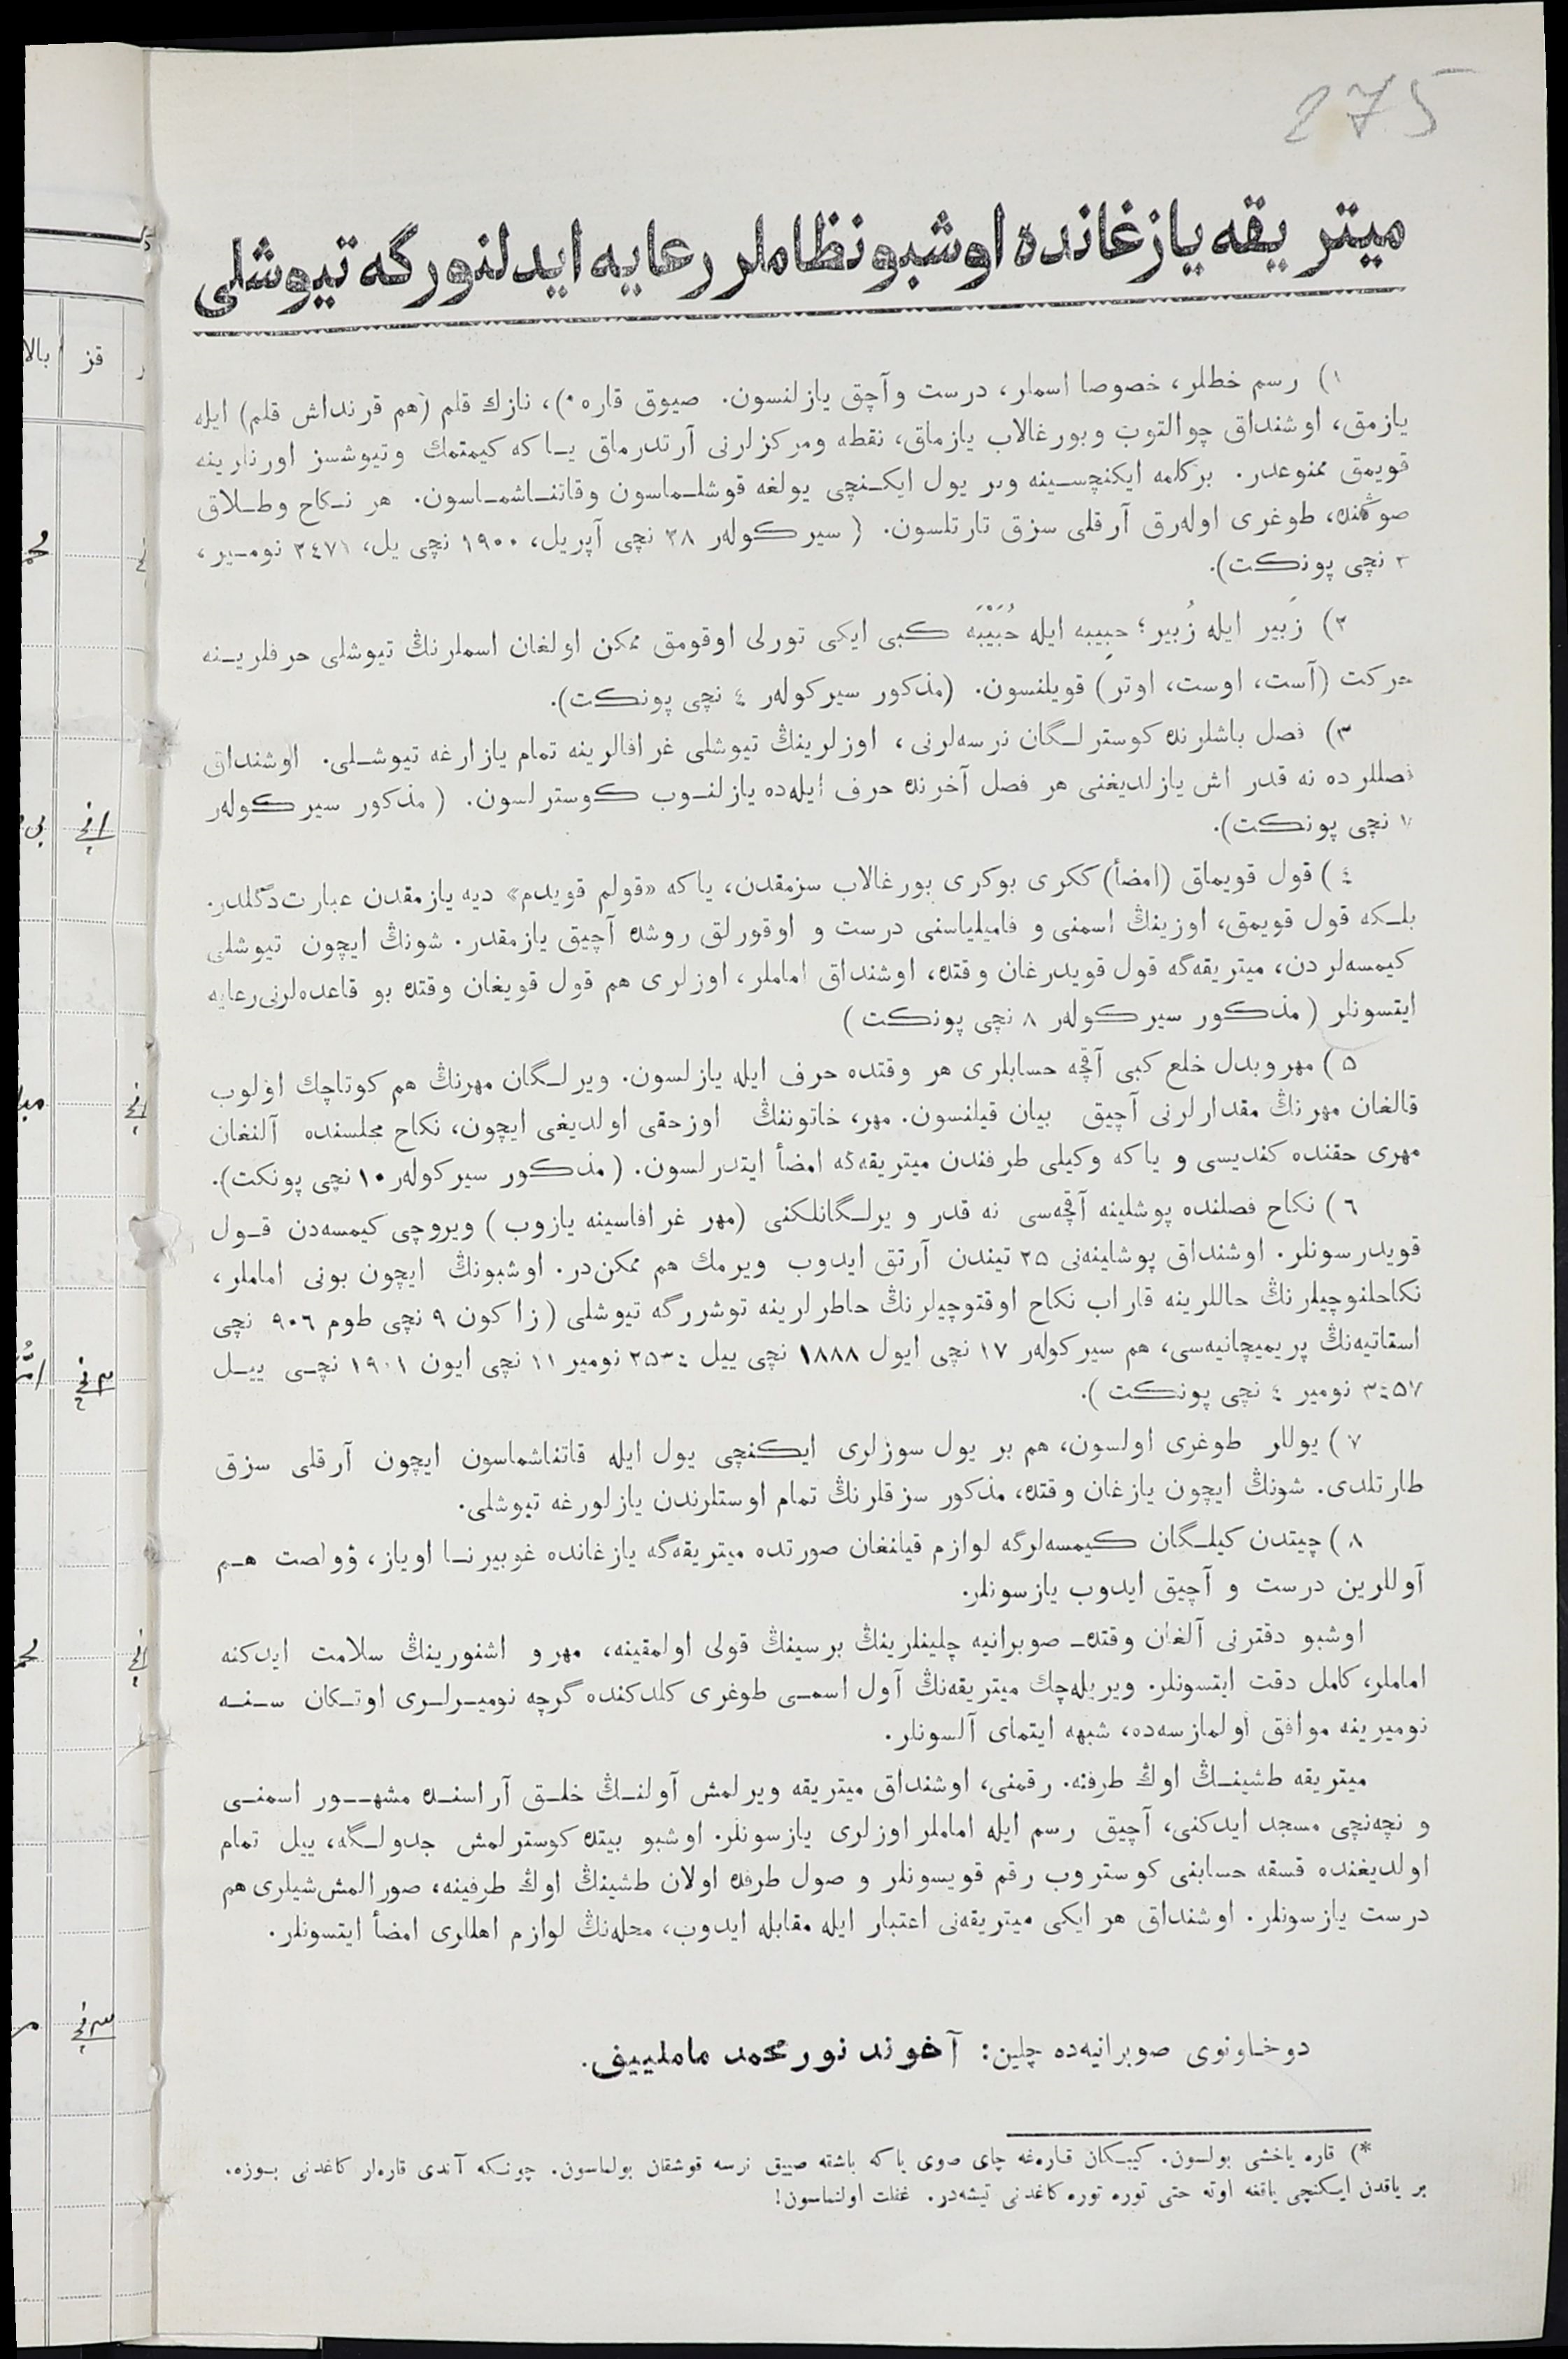 275
ميتريقه يازغانده اوشبو نظاملر رعايه ايدلنورگه تيوشلى
١) رسم خطلر، خصوصا اسملر، درست وآچق يازلنسون. صيوق قاره *)، نازك قلم (هم قرنداش قلم) ايله
يازمق، اوشنداق چوالتوب وبورغالاب يازماق، نقطه ومركزلرنى آرتدرماق يـا كه كيمتمك وتيوشسز اورنلرينه
قويمق ممنوعدر. بركلمه ايكنچسـينه وبر يول ايكـنچى يولغه قوشلـماسون وقاتنـاشمـاسون. هر نـكاح وطـلاق
صوڭنده، طوغرى اوله‌رق آرقلى سزق تارتلسون. (سيركولەر ٢٨ نچى آپريل، ١٩٠٠ نچى يل، ٢٤٧١ نومـير،
٢ نچى پونكت).
٢) زَبير ايله زُبير؛ حبِيبه ايله حُبَيْبَه كبى ايكى تورلى اوقومق ممكن اولغان اسملرنڭ تيوشلى حرفلريـنه
حركت (آست، اوست، اوتر) قويلنسون. (مذكور سيركولەر ٤ نچى پونكت).
٣) فصل باشلرنده كوسترلـگان نرسه‌لرنى، اوزلرينڭ تيوشلى غرافالرينه تمام يازارغه تيوشـلى. اوشنداق
فصللرده نه قدر اش يازلديغنى هر فصل آخرنده حرف ايله‌ده يازلنـوب كوسترلسون. (مذكور سيركولەر
٧ نچى پونكت).
٤) قول قويماق (امضأ) ككرى بوكرى بورغالاب سزمقدن، ياكه «قولم قويدم» ديه يازمقدن عبارت دگلدر.
بلـكه قول قويمق، اوزينڭ اسمنى و فاميلياسنى درست و اوقورلق روشده آچيق يازمقدر. شونڭ ايچون تيوشلى
كيمسه‌لردن، ميتريقه‌گه قول قويدرغان وقتده، اوشنداق اماملر، اوزلرى هم قول قويغان وقتده بو قاعده‌لرنى رعايه
ايتسونلر (مذكور سيركولەر ٨ نچى پونكت)
٥) مهر وبدل خلع كبى آقچه حسابلرى هر وقتده حرف ايله يازلسون. ويرلـگان مهرنڭ هم كوتاچك اولوب
قالغان مهرنڭ مقدارلرنى آچيق بيان قيلنسون. مهر، خاتوننڭ اوزحقى اولديغى ايچون، نكاح مجلسنده آلنغان
مهرى حقنده كنديسى و ياكه وكيلى طرفندن ميتريقه‌گه امضأ ايتدرلسون. (مذكور سيركولەر ١٠ نچى پونكت).
٦) نكاح فصلنده پوشلينه آقچه‌سى نه قدر ويرلـگانلكنى (مهر غرافاسينه يازوب) ويروچى كيمسه‌دن قـول
قويدرسونلر. اوشنداق پوشلينه‌نى ٢٥ تيندن آرتق ايدوب ويرمك هم ممكن‌در. اوشبونڭ ايچون بونى اماملر،
نكاحلنوچيلرنڭ حاللرينه قاراب نكاح اوقتوچيلرنڭ خاطرلرينه توشررگه تيوشلى (زاكون ٩ نچى طوم ٩٠٦ نچى
استاتيه‌نڭ پريميچانيه‌سى، هم سيركولەر ١٧ نچى ايول ١٨٨٨ نچى ييل ٢٥٣٤ نومير ١١ نچى ايون ١٩٠١ نچـى ييـل
٣٤٥٧ نومير ٤ نچى پونكت).
٧) يوللر طوغرى اولسون، هم بر يول سوزلرى ايكنچى يول ايله قاتناشماسون ايچون آرقلى سزق
طارتلدى. شونڭ ايچون يازغان وقتده، مذكور سزقلرنڭ تمام اوستلرندن يازلورغه تيوشلى.
٨) چيتدن كيلـگان كيمسه‌لرگه لوازم قيلنغان صورتده ميتريقه‌گه يازغانده غوبيرنـا اوياز، ؤولصت هـم
آوللرين درست و آچيق ايدوب يازسونلر.
اوشبو دفترنى آلغان وقتده ـ صوبرانيه چلينلرينڭ برسينڭ قولى اولمقينه، مهر و اشنورينڭ سلامت ايدكنه
اماملر، كامل دقت ايتسونلر. ويريله‌چك ميتريقه‌نڭ آول اسمـى طوغرى كلدكنده گرچه نوميـرلـرى اوتـكان سـنـه
نوميرينه موافق اولمازسه‌ده، شبهه ايتماى آلسونلر.
ميتريقه طشينـڭ اوڭ طرفنه. رقمنى، اوشنداق ميتريقه ويرلمش آولنـڭ خلـق آراسنـده مشهـور اسمنـى
و نچه‌نچى مسجد ايدكنى، آچيق رسم ايله اماملر اوزلرى يازسونلر. اوشبو بيتده كوسترلمش جدولـگه، ييل تمام
اولديغنده قسقه حسابنى كوستروب رقم قويسونلر و صول طرفده اولان طشينڭ اوڭ طرفينه، صورالمش شيلرى هم
درست يازسونلر. اوشنداق هر ايكى ميتريقه‌نى اعتبار ايله مقابله ايدوب، محله‌نڭ لوازم اهللرى امضأ ايتسونلر.
دوخاونوى صوبرانيه‌ده چلين: آخوند نورمحمد ماملييف.
*) قاره ياخشى بولسون. كيبـكان قاره‌غه چاى صوى ياكه باشقه صييق نرسه قوشقان بولماسون. چونـكه آندى قاره‌لر كاغدنى بـوزه.
بر ياقدن ايـكنچى ياقغه اوته حتى توره توره كاغدنى تيشه‌در. غفلت اولنماسون!
قز
بالا